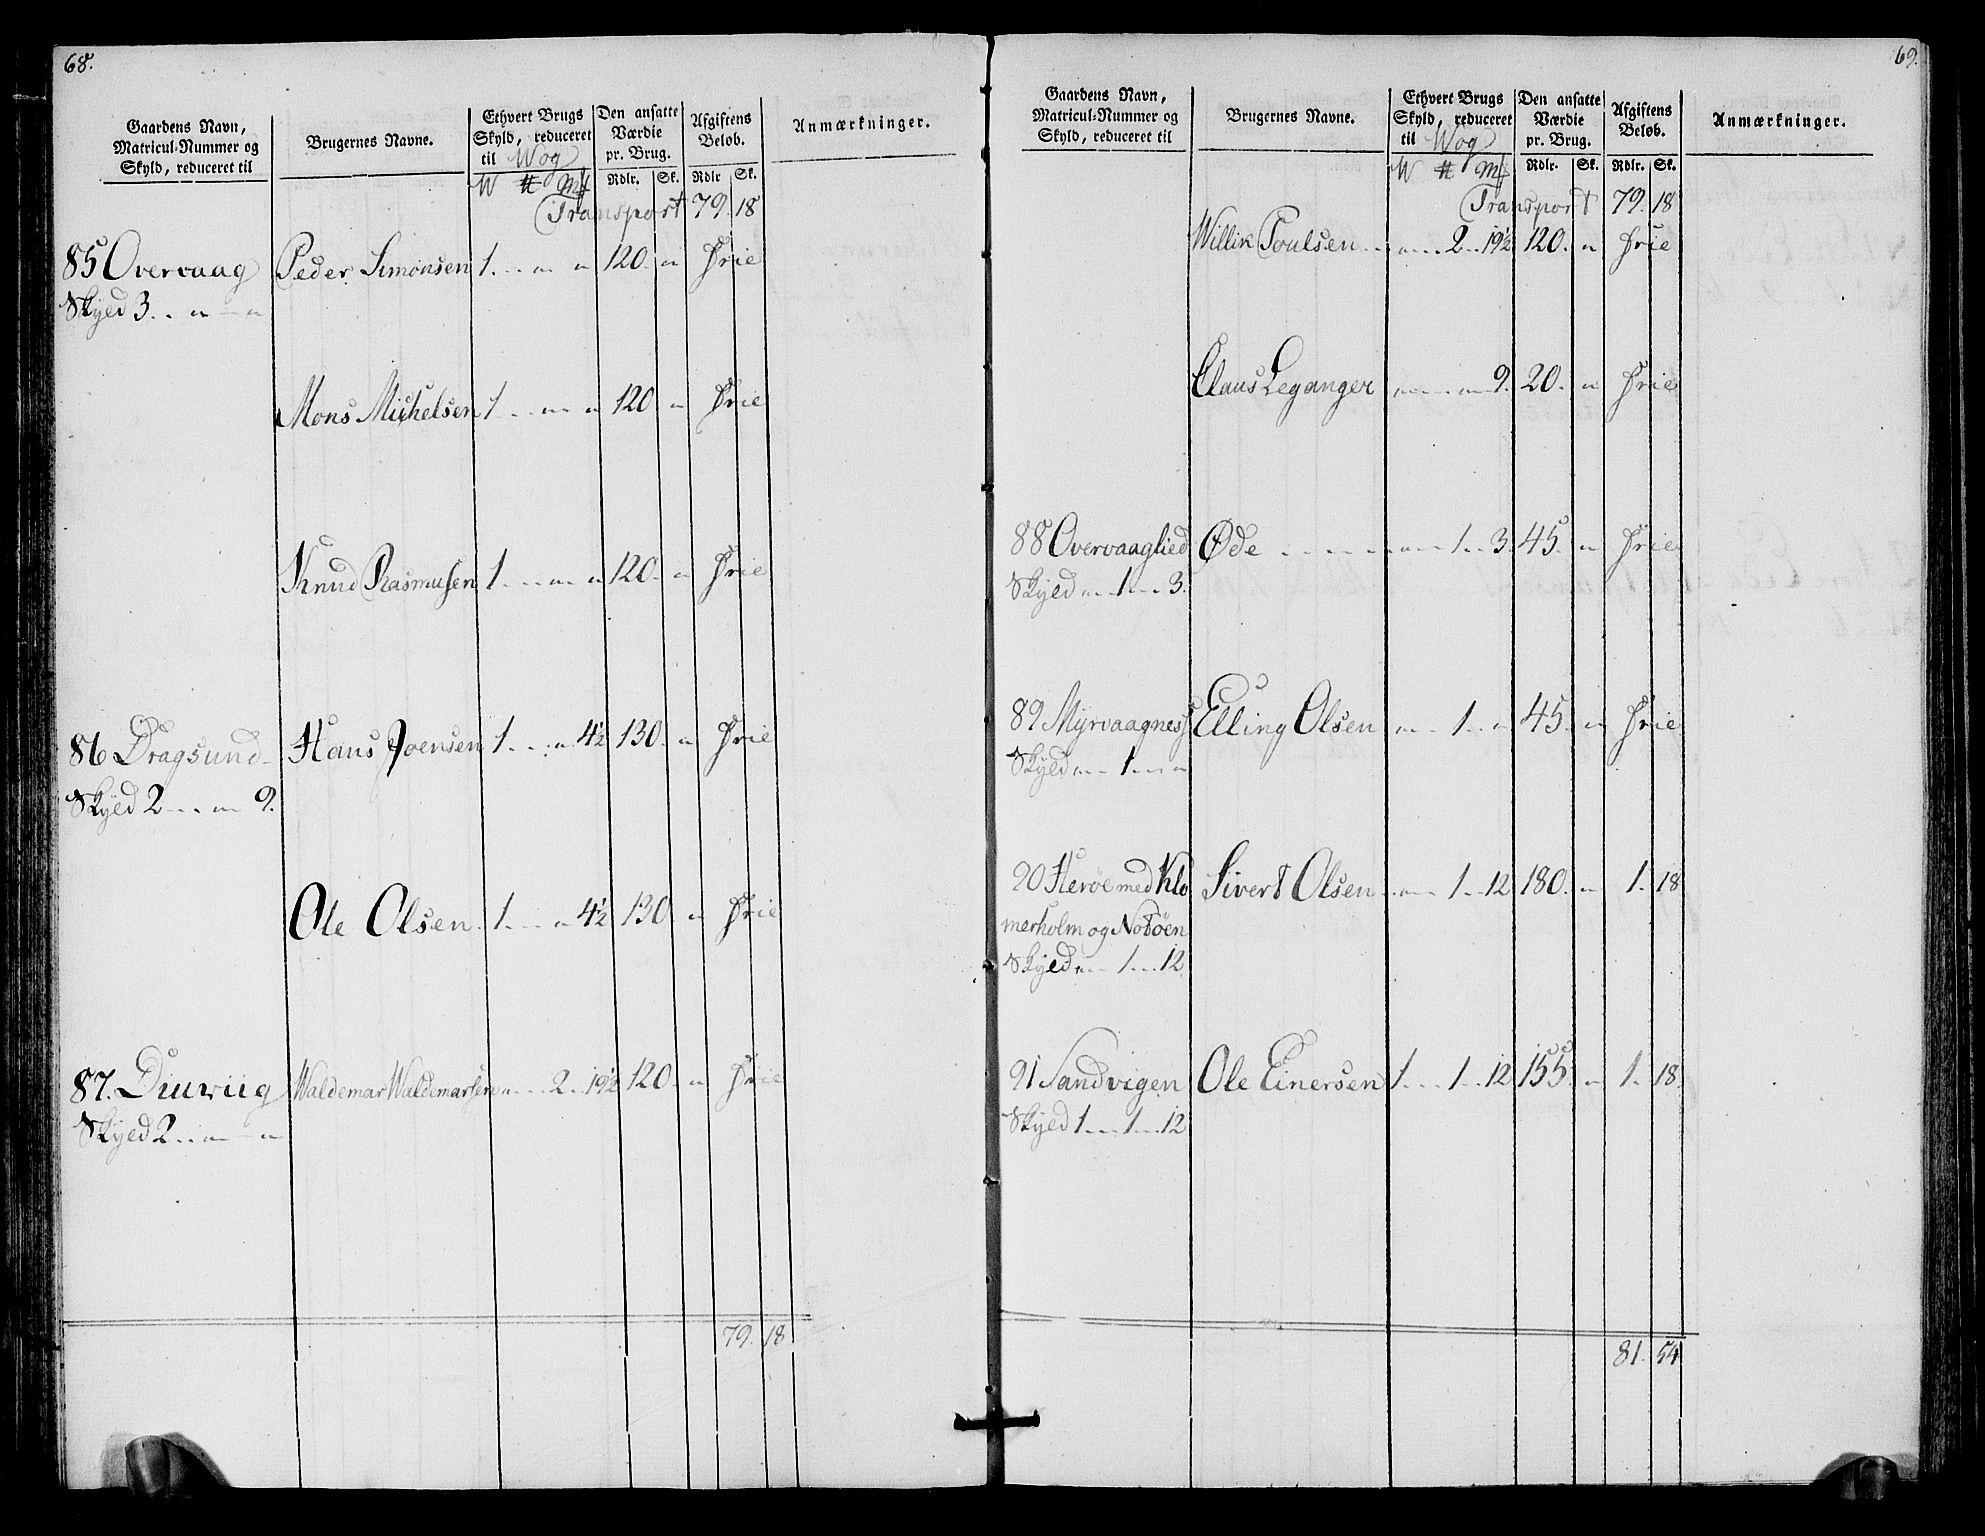 68.
Gaardens Navn, Matricul-Nummer og Skyld, reduceret til | Brugernes Navne. | Ethvert Brugs Skyld, reduceret til Wog | Den ansatte Værdie pr. Brug. | Afgiftens Beløb. | Anmærkninger.
W ℔ Mk | Rdlr. | Sk. | Rdlr | Sk.
Transport 79. 18
85 Overvaag Peder Simonsen 1 . . „ „ 120. „ Frie
Skyld 3. . „ — „
Mons Michelsen 1 . . „ „ 120 „ Frie
Knud Rasmusen 1 . . „ „ 120. „ Frie
86 Dragsund Hans Joensen 1 . . „ 4½ 130. „ Frie
Skyld 2 . . „ 9.
Ole Olsen 1 . . „ 4½ 130 „ Frie
87. Diurviig Waldemar Waldemarsen „ . . 2 . . 19½ 120. „ Frie
Skyld 2 . . „ — „
79. 18
69.
Gaardens Navn, Matricul-Nummer og Skyld, reduceret til | Brugernes Navne. | Ethvert Brugs Skyld, reduceret til Wog | Den ansatte Værdie pr. Brug. | Afgiftens Beløb. | Anmærkninger.
W ℔ Mk | Rdlr. | Sk. | Rdlr. | Sk.
Transport 79. 18
Willik Poulsen „ . . 2 . . 19½ 120. „ Frie
Claus Leganger „ . . „ 9. 20. „ Frie
88 Overvaaglied Øde „ . . 1 . . 3. 45. „ Frie
Skyld „ . . 1 . . 3.
89 Myrvaagness Elling Olsen „ . . 1 . . „ 45. „ Frie
Skyld „ . . 1 . . „
90 Herøe med Klo Sivert Olsen „ . . 1 . . 12 180. „ 1. 18
merholm og Notøen
Skyld „ . . 1 . . 12.
91 Sandvigen Ole Einersen 1 . . 1 . . 12 155. „ 1. 18.
Skyld 1 . . 1 . . 12
81. 54